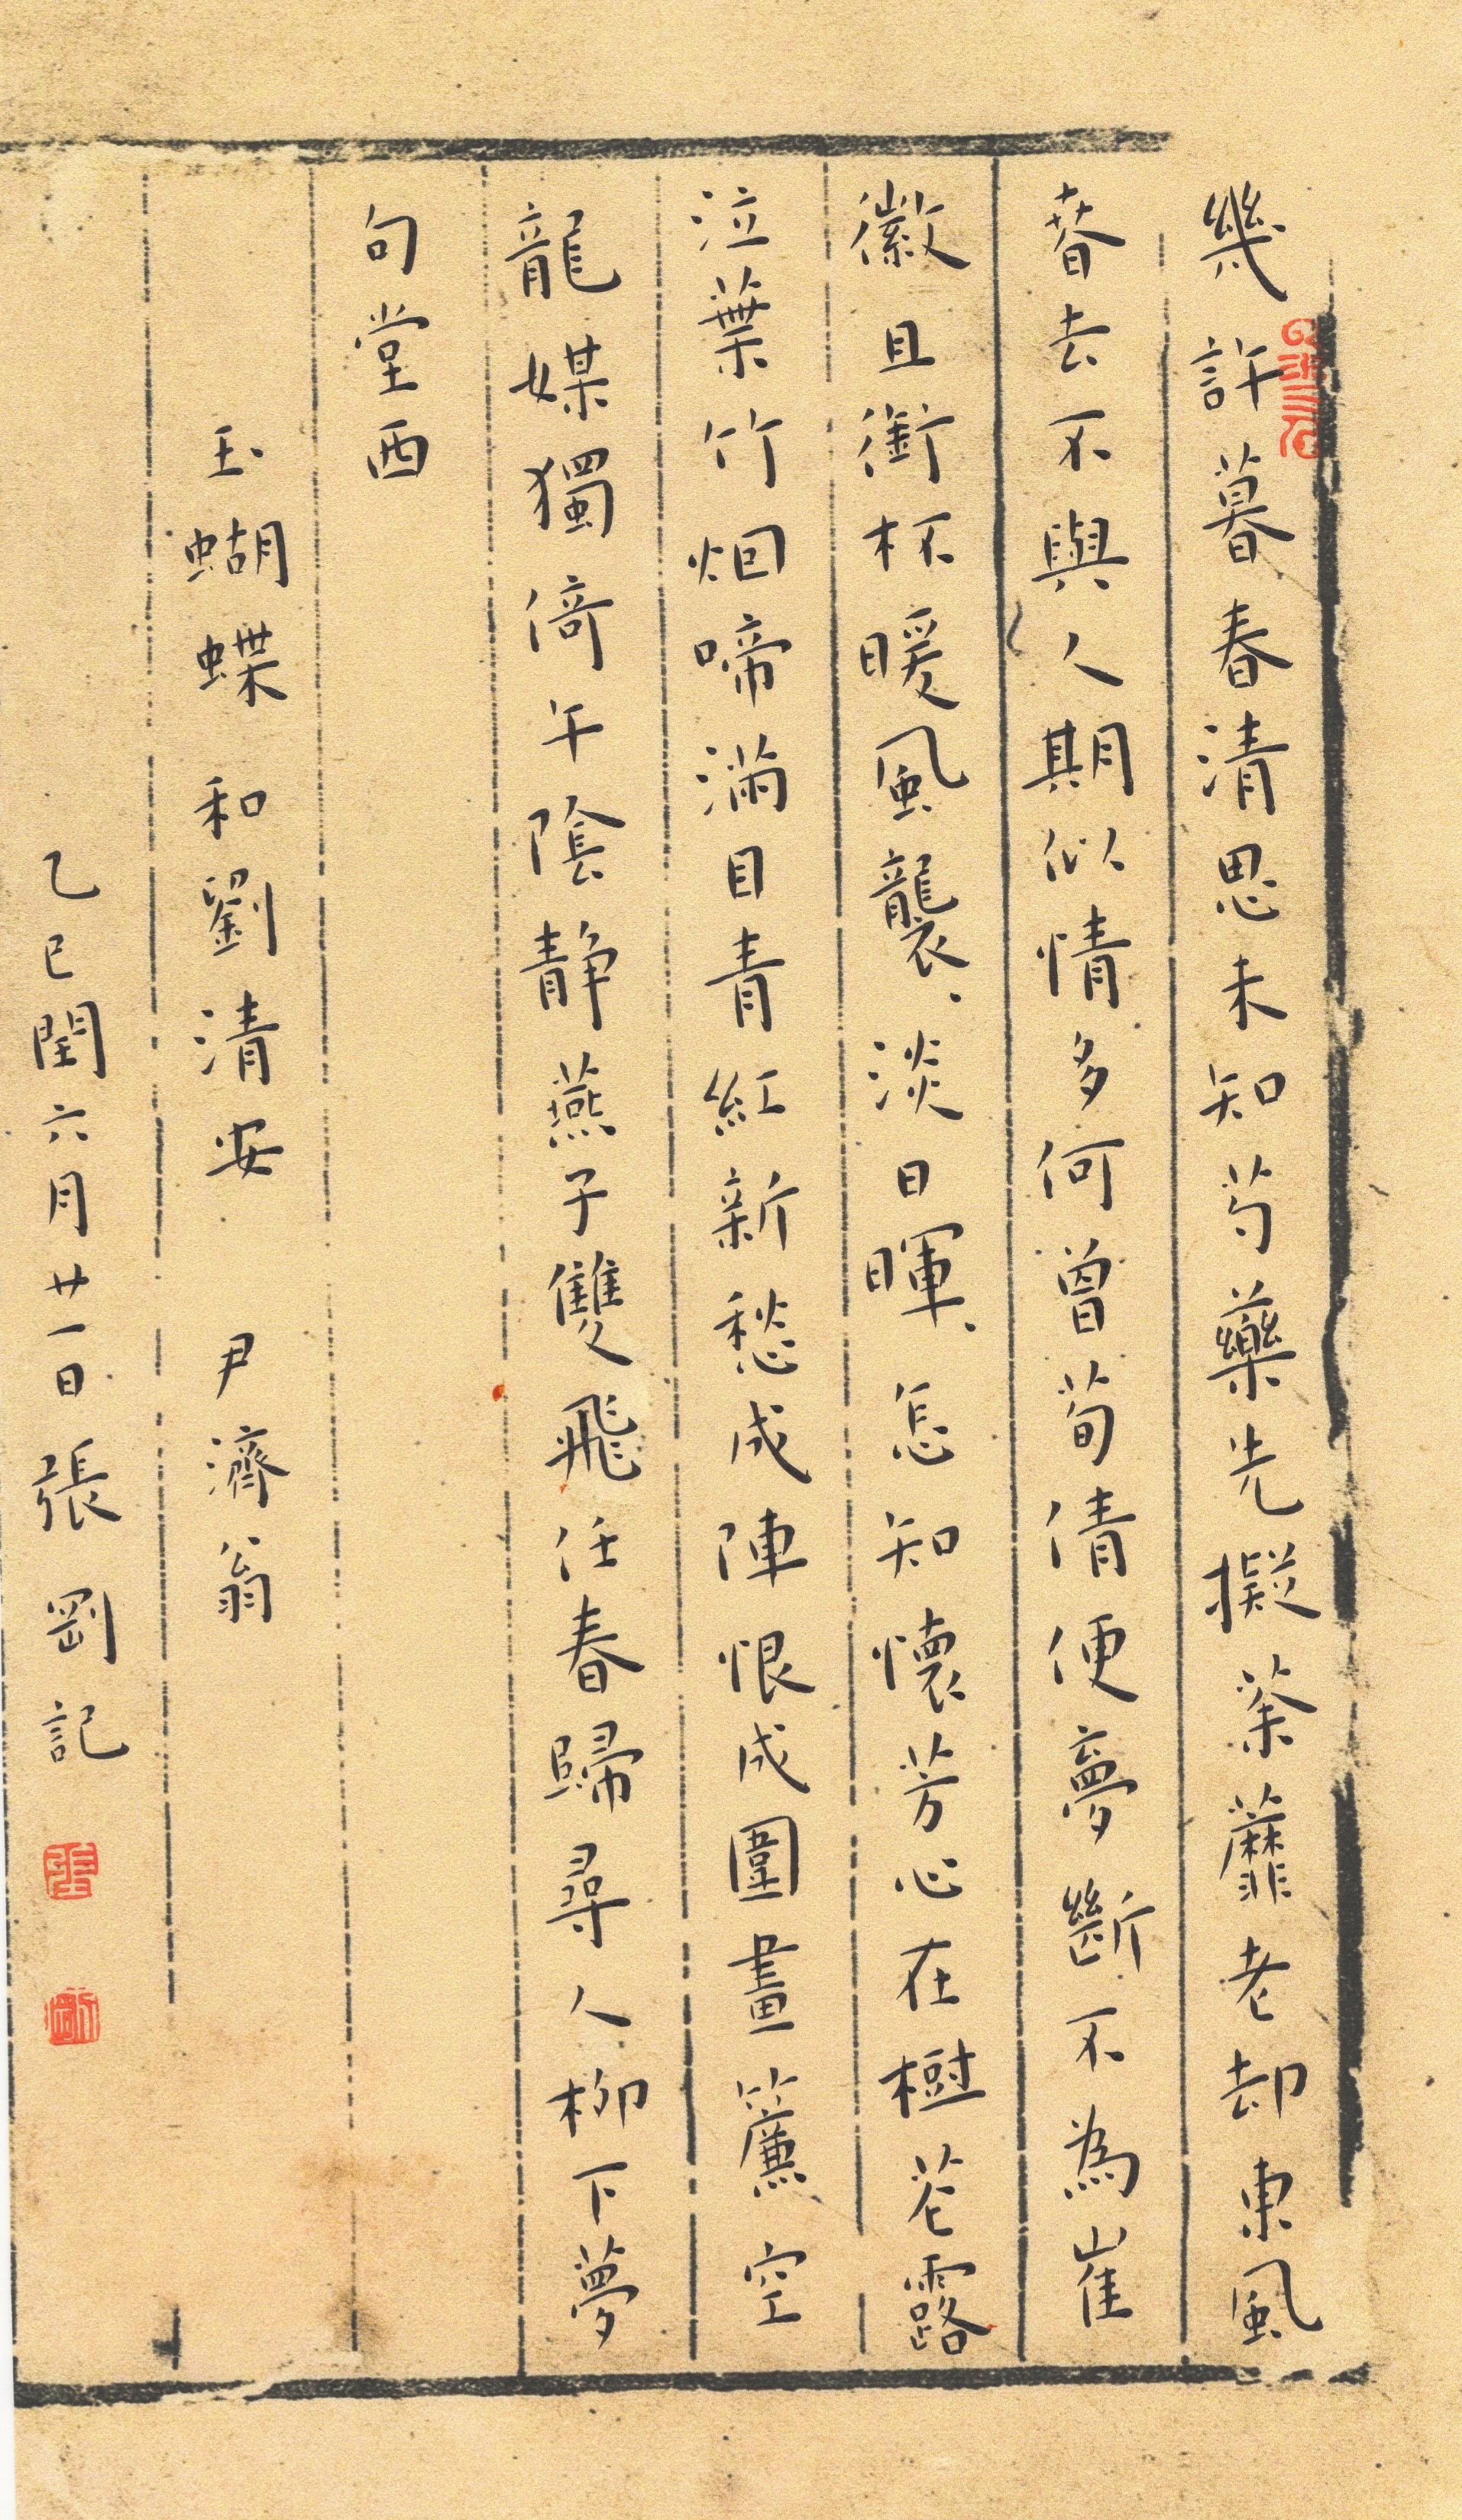 幾許暮春清思未知芍藥先擬荼蘼老却東風
春去不與人期似情多何曾荀倩便夢斷不為崔
徽且銜杯暖風襲、淡日暉、怎知懷芳心在樹花露
泣葉竹烟啼滿目青紅新愁成陣恨成圍畫簾空
龍媒獨倚午陰靜燕子雙飛任春歸尋人柳下夢
句堂西
玉蝴蝶 和劉清安 尹濟翁
乙巳閏六月廿一日張剛記